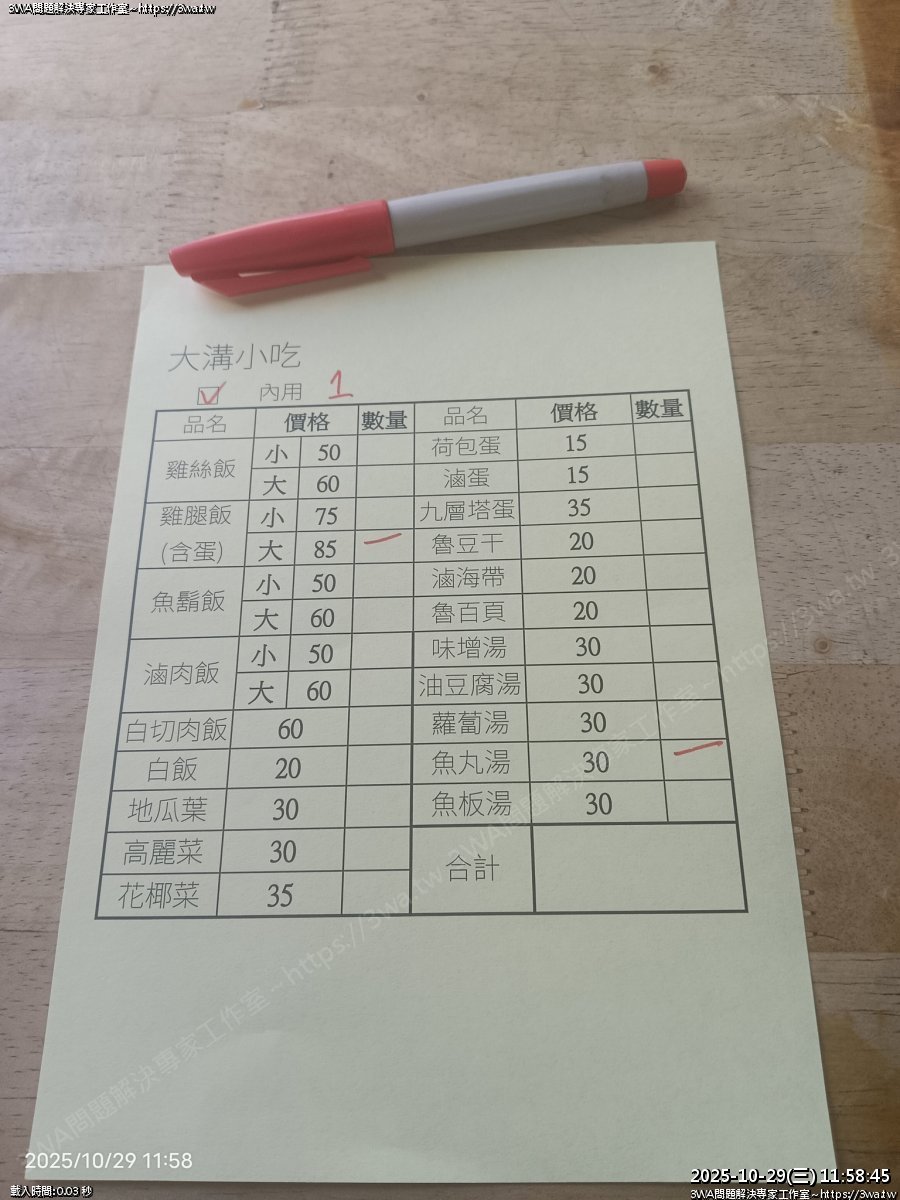 3WA問題解決專家工作室~https://3wa.tw
大溝小吃
☑ 內用 1
品名 價格 數量 品名 價格 數量
雞絲飯 小 50 荷包蛋 15
大 60 滷蛋 15
雞腿飯 (含蛋) 小 75 九層塔蛋 35
大 85 一 魯豆干 20
魚鬍飯 小 50 滷海帶 20
大 60 魯百頁 20
滷肉飯 小 50 味增湯 30
大 60 油豆腐湯 30
白切肉飯 60 蘿蔔湯 30
白飯 20 魚丸湯 30 一
地瓜葉 30 魚板湯 30
高麗菜 30 合計
花椰菜 35
3WA問題解決專家工作室~https://3wa.tw 3WA問題解決專家工作室~https://3wa.tw
2025/10/29 11:58
2025-10-29(三) 11:58:45
載入時間:0.03 秒
3WA問題解決專家工作室~https://3wa.tw